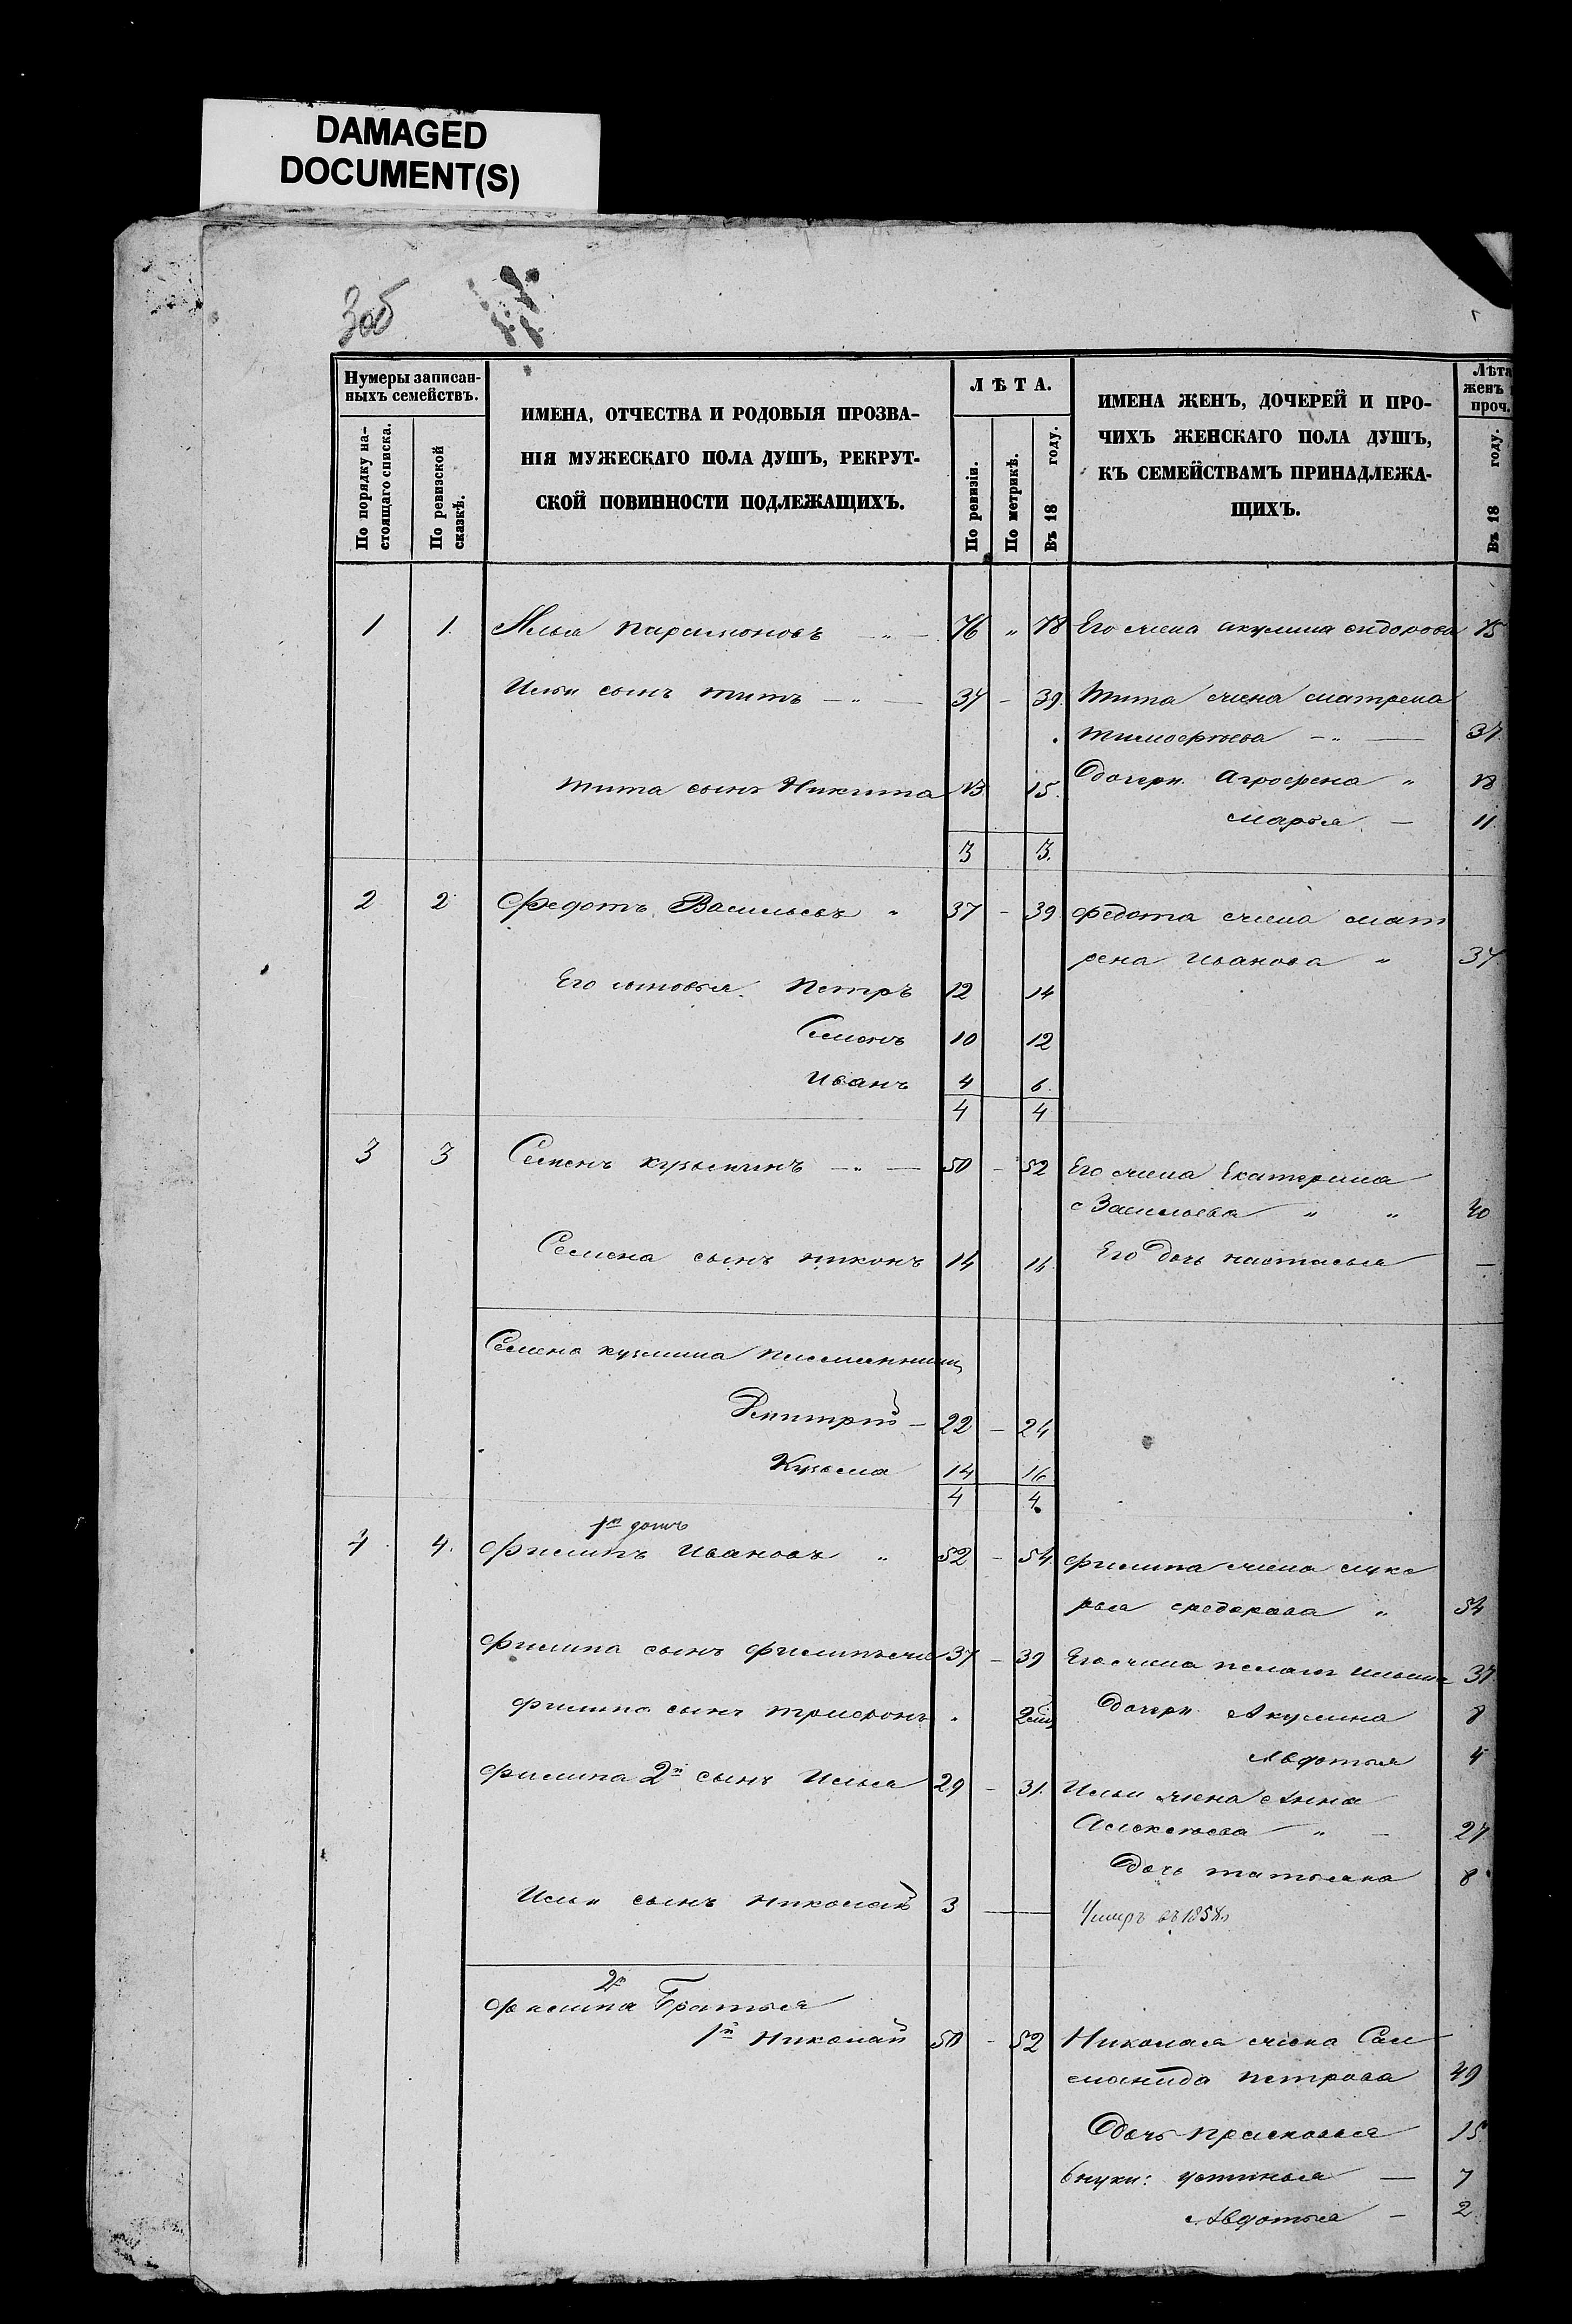 DAMAGED
DOCUMENT(S)
3об
Нумеры записан-
ныхъ семействъ.
По порядку на-
стоящаго списка.
По ревизской
сказкѣ.
ИМЕНА, ОТЧЕСТВА И РОДОВЫЯ ПРОЗВА-
НІЯ МУЖЕСКАГО ПОЛА ДУШЪ, РЕКРУТ-
СКОЙ ПОВИННОСТИ ПОДЛЕЖАЩИХЪ.
ЛѢТА.
По ревизіи.
По метрикѣ.
Въ 18 году.
ИМЕНА ЖЕНЪ, ДОЧЕРЕЙ И ПРО-
ЧИХЪ ЖЕНСКАГО ПОЛА ДУШЪ,
КЪ СЕМЕЙСТВАМЪ ПРИНАДЛЕЖА-
ЩИХЪ.
Лѣта
женъ
проч.
Въ 18 году.
1 1. Илья Парамоновъ — " — 76 " 78 Его жена акулина сидорова 75
Ильи сынъ титъ — " — 37 — 39. Тита жена матрена
тимофѣева — " — 37.
тита сынъ Никита 13 15. Дочери Агрофена " 18
марья — 11
3 3.
2 2 Федотъ Васильевъ " 37 — 39 федота жена мат
рена иванова " 37
Его сыновья Петръ 12 14
Семенъ 10 12
иванъ 4 6.
4 4
3 3 Семенъ кузьминъ — " — 50 — 52 Его жена Екатерина
Васильева " " 40
Семена сынъ никонъ 14 16 Его дочь настасья —
Семена кузмина племянники
Дмитрій — 22 — 24
Кузьма 14 16
4 4.
1й домъ
4 4. Филипъ Ивановъ " 52 — 54 филипа жена луке
рья федорова " 54
филипа сынъ 37 — 39 Его жена пелагея ильина 37
филипа сынъ трифонъ " Дочери Акулина 8
Авдотья 4
филипа 2й сынъ Илья 29 — 31. Ильи жена Анна
Алексеева " — 27
Дочь татьяна 8
Ильи сынъ николай 3 — Умеръ въ 1858
2й
филипа Братья
1й Николай 50 — 52 Николая жена Сал
манида петрова 49
Дочь прасковья 15
внуки: устинья — 7
Авдотья — 2